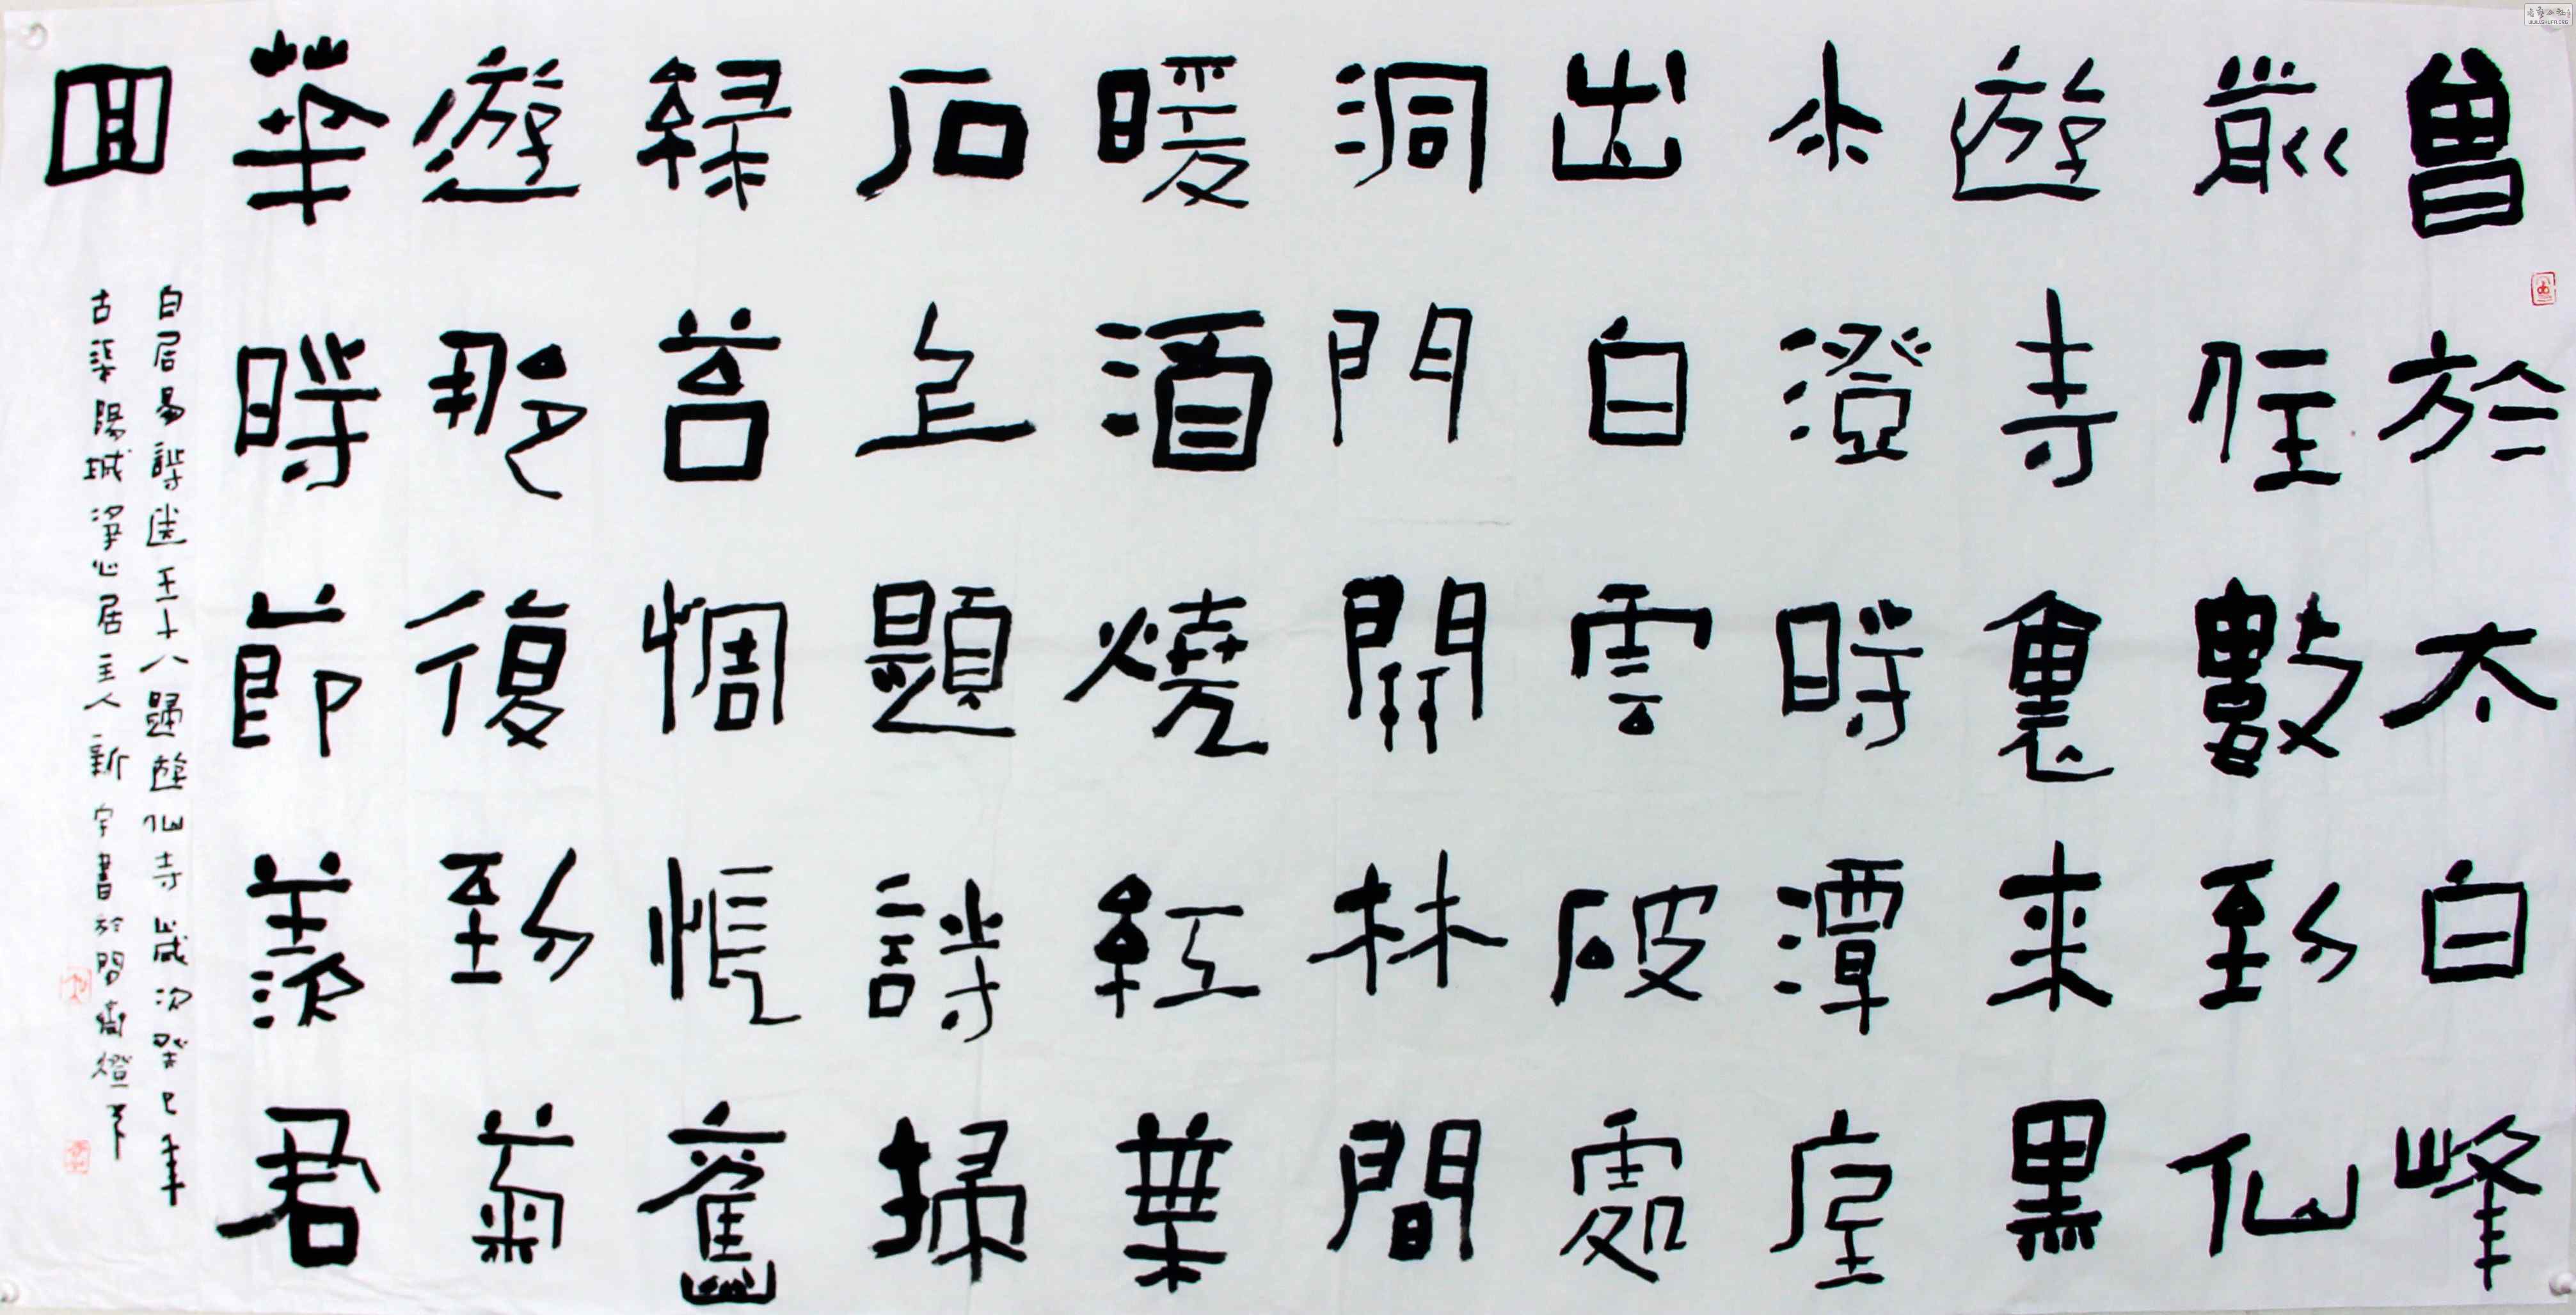 曾於太白峰
前住數到仙
遊寺裏来黑
水澄時潭底
出白雲破處
洞門開林間
暖酒燒紅葉
石上題詩掃
緑苔惆悵舊
遊那復到菊
華時節羡君
回
白居易詩送王十八歸遊仙寺歲次癸巳年
古渠陽城淨心居主人新宇書於問齋燈下